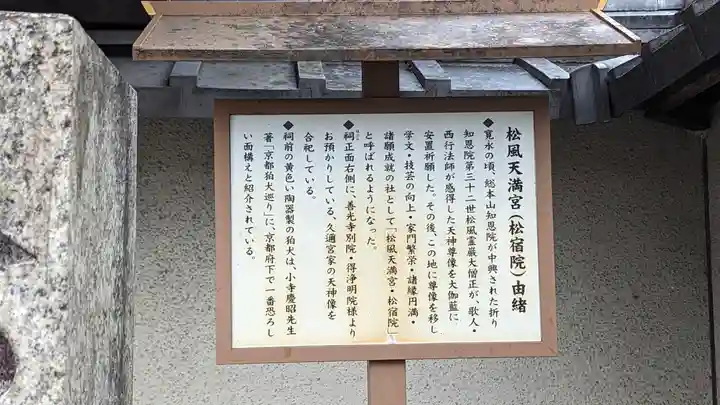 松風天満宮（松宿院）由緒
◆寛永の頃、総本山知恩院が中興された折り
知恩院第三十二世松風霊巖大僧正が、歌人・
西行法師が感得した天神尊像を大伽藍に
安置祈願した。その後、この地に尊像を移し
学文・技芸の向上・家門繁栄・諸縁円満・
諸願成就の社として「松風天満宮・松宿院」
と呼ばれるようになった。
◆祠正面右側に、善光寺別院・得浄明院様より
お預かりしている、久邇宮家の天神像を
合祀している。
◆祠前の黄色い陶器製の狛犬は、小寺慶昭先生
著「京都狛犬巡り」に、京都府下で一番恐ろし
い面構えと紹介されている。